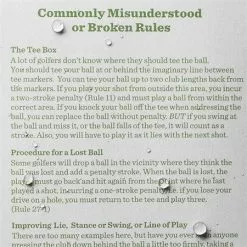 Commonly Misunderstood
or Broken Rules
The Tee Box
A lot of golfers don't know where they should tee the ball.
You should tee your ball at or behind the imaginary line between
tee markers. You can tee your ball up to two club lengths back from
the markers. If you play your shot from outside this area, you incur
a two-stroke penalty (Rule 11) and must play a ball from within the
correct area. If you knock your ball off the tee when addressing
the ball, you can replace the ball without penalty. BUT if you swing
at the ball and miss it, or the ball falls of the tee, it will count as a
stroke. Also, you will have to play it as it lies with the next shot.
Procedure for a Lost Ball
Some golfers will drop a ball in the vicinity where they think the
ball was lost and add a penalty stroke. When the ball is lost, the
player must go back and hit again from the point where he last
played a shot, incurring a one-stroke penalty. if you lose your
drive on a hole, you must return to the tee and play three.
(Rule 27-1)
Improving Lie, Stance or Swing, or Line of Play
There are too many examples here, but have you ever seen anyone
pressing the club down behind the ball a little too firmly, taking